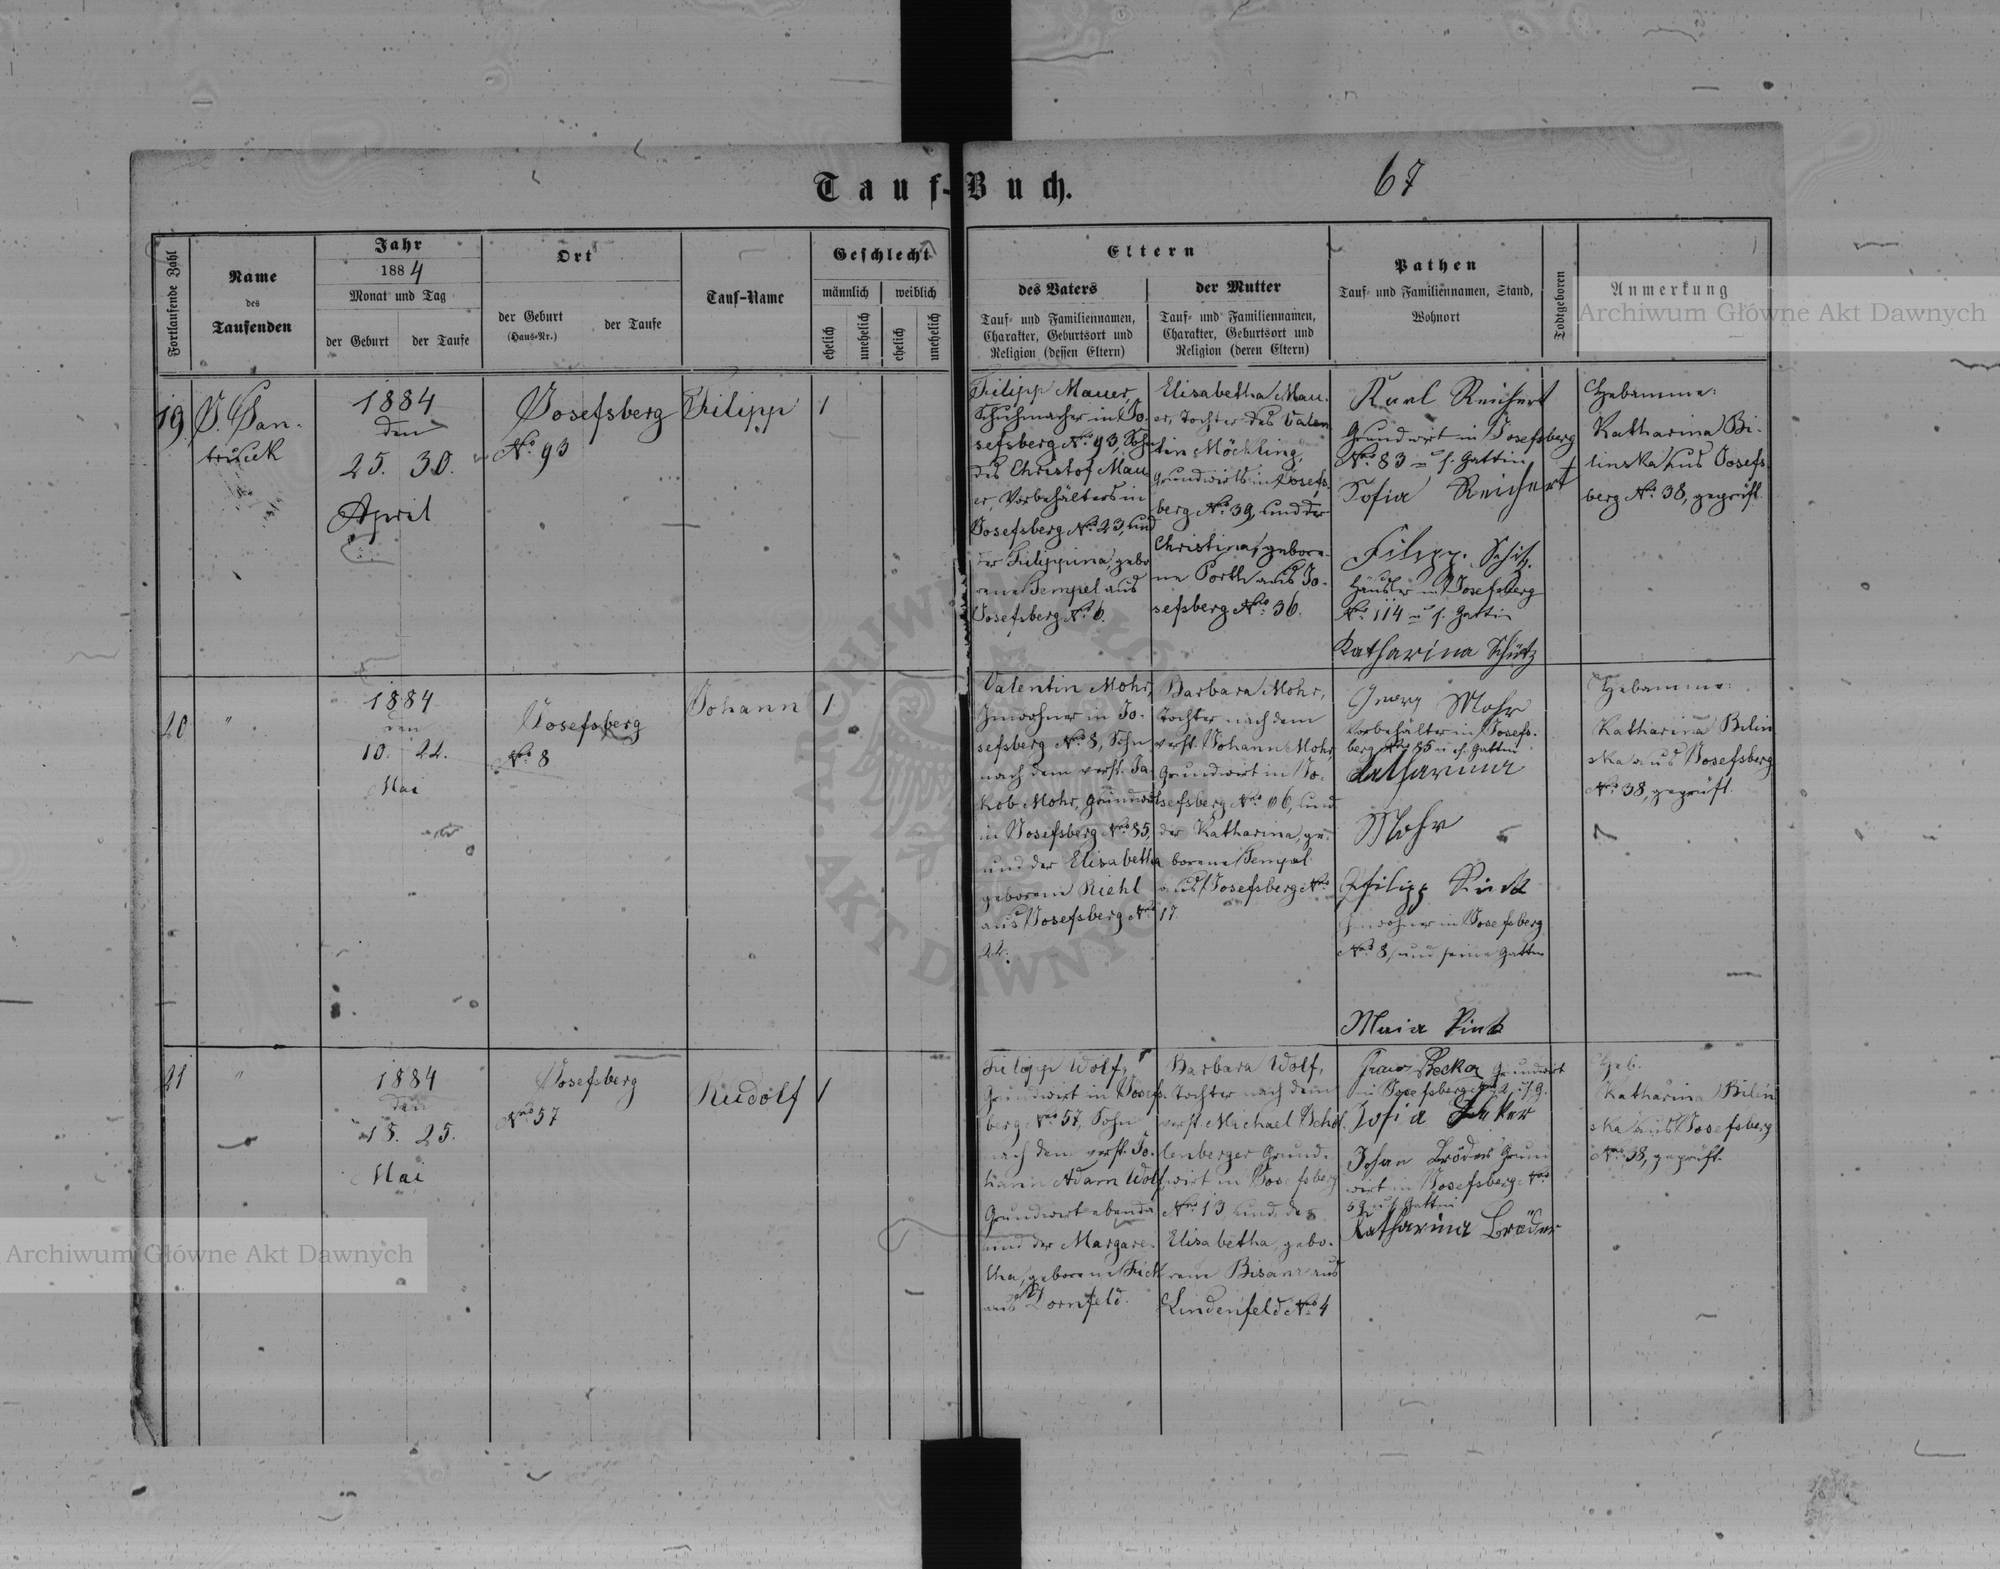 Tauf-Buch.
67
Fortlaufende Zahl
Name
des
Taufenden
Jahr
1884
Monat und Tag
der Geburt
der Taufe
Ort
der Geburt
(Haus-Nr.)
der Taufe
Tauf-Name
Geschlecht
männlich
weiblich
ehelich
unehelich
ehelich
unehelich
Eltern
des Vaters
Tauf- und Familiennamen,
Charakter, Geburtsort und
Religion (dessen Eltern)
der Mutter
Tauf- und Familiennamen,
Charakter, Geburtsort und
Religion (deren Eltern)
Pathen
Tauf- und Familiennamen, Stand,
Wohnort
Todtgeboren
Anmerkung
19
1884
den
25. 30.
April
Josefsberg
No. 93
Filipp
1
Filipp Mauer,
Schuhmacher in Jo-
sefsberg No. 93, Sohn
des Christof Mau
er, Vorbehälters in
Josefsberg No. 23, und
der Filippina, gebo
rene Tempel aus
Josefsberg No. 6.
Elisabetha Mau-
er, Tochter des Valen
tin Möckling,
Grundwirts in Josefs-
berg No. 39, und der
Christina, gebore-
ne Porth aus Jo-
sefsberg No. 36.
Karl Reichert
Grundwirt in Josefsberg
No. 83 u f. Gattin
Sofia Reichert
Filipp Schitz.
Häusler in Josefsberg
No. 114 u f. Gattin
Katharina Schütz
Hebamme:
Katharina Bi-
linska aus Josefs-
berg No. 38, geprüft.
20
"
1884
den
10. 22.
Mai
Josefsberg
No. 8
Johann
1
Valentin Mohr,
Inwohner in Jo-
sefsberg No. 8, Sohn
nach dem verst. Ja-
kob Mohr, Grundwirt
in Josefsberg No. 85,
und der Elisabetha
geborene Riehl
aus Josefsberg No.
22.
Barbara Mohr,
Tochter nach dem
verst. Johann Mohr,
Grundwirt in Jo-
sefsberg No. 66, und
der Katharina, ge-
borene Tempel
aus Josefsberg No.
17.
Georg Mohr
Vorbehälter in Josefs-
berg No. 85 u. f. Gattin
Katharina
Mohr
Philipp
Inwohner in Josefsberg
No. 8, und seine Gattin
Hebamme:
Katharina Bilin
ska aus Josefsberg
No. 38, geprüft.
21
"
1884
den
15. 25.
Mai
Josefsberg
No. 57
Rudolf
1
Filipp Wolf,
Grundwirt in Josefs-
berg No. 57, Sohn
nach dem verst. Jo-
hann Adam Wolf,
Grundwirt ebenda
und der Margare-
tha, geborene Fick
aus Dornfeld.
Barbara Wolf,
Tochter nach dem
verst. Michael Schol
lenberger Grund-
wirt in Josefsberg
No. 13, und der
Elisabetha, gebo-
rene Bisanz aus
Lindenfeld No. 4
Becker Grundwirt
in Josefsberg
Sofia Beker
Johan Bröder Grund
wirt in Josefsberg No.
59 u f. Gattin
Katharina Bröder
Heb.
Katharina Bilin
ska aus Josefsberg
No. 38, geprüft.
Archiwum Główne Akt Dawnych
Archiwum Główne Akt Dawnych
ARCHIWUM
AKT DAWNYCH